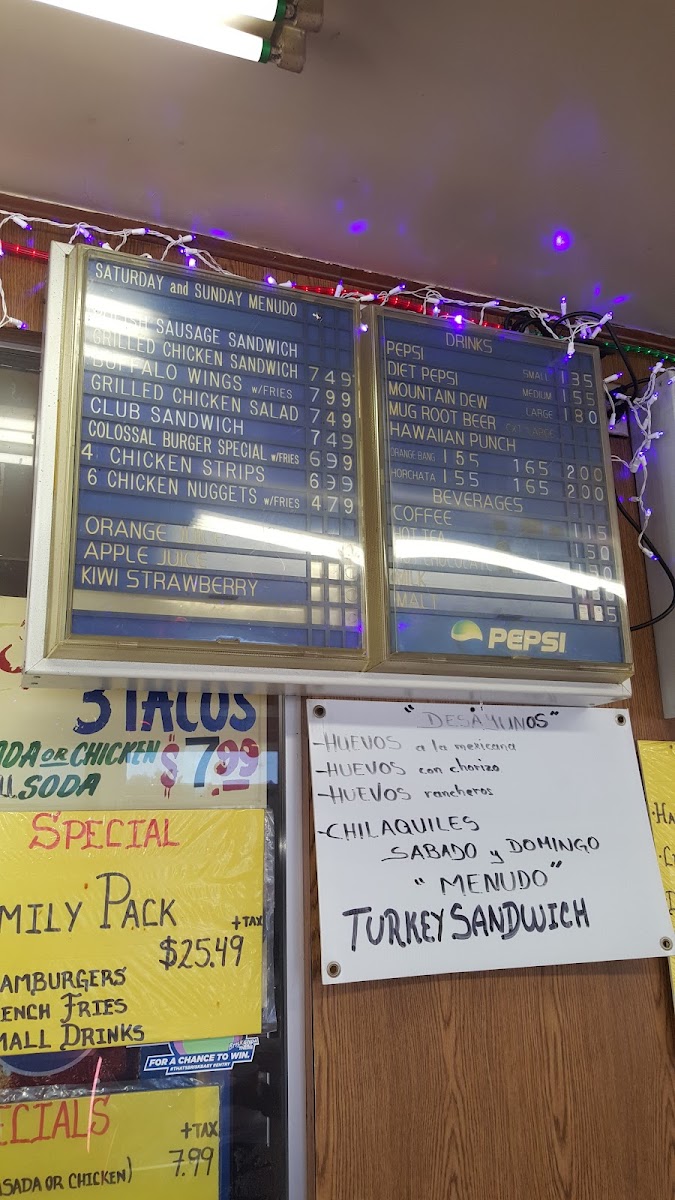 SATURDAY and SUNDAY MENUDO
SAUSAGE SANDWICH
GRILLED CHICKEN SANDWICH 749
BUFFALO WINGS W/FRIES 799
GRILLED CHICKEN SALAD 749
CLUB SANDWICH 749
COLOSSAL BURGER SPECIAL W/FRIES 699
4 CHICKEN STRIPS 699
6 CHICKEN NUGGETS W/FRIES 479
ORANGE JUICE
APPLE JUICE
KIWI STRAWBERRY
DRINKS
PEPSI
DIET PEPSI SMALL 135
MOUNTAIN DEW MEDIUM 155
MUG ROOT BEER LARGE 180
HAWAIIAN PUNCH
ORANGE BANG 155 165 200
HORCHATA 155 165 200
BEVERAGES
COFFEE 115
HOT TEA 150
CHOCOLATE
MILK
MALT
PEPSI
3 TACOS
OR CHICKEN $7.99
SODA
"DESAYUNOS"
-HUEVOS a la mexicana
-HUEVOS con chorizo
-HUEVOS rancheros
-CHILAQUILES
SABADO y DOMINGO
"MENUDO"
TURKEY SANDWICH
SPECIAL
MILY PACK
+TAX
$25.49
HAMBURGERS
ENCH FRIES
MALL DRINKS
FOR A CHANCE TO WIN.
ECIALS
+TAX
SADA OR CHICKEN) 7.99